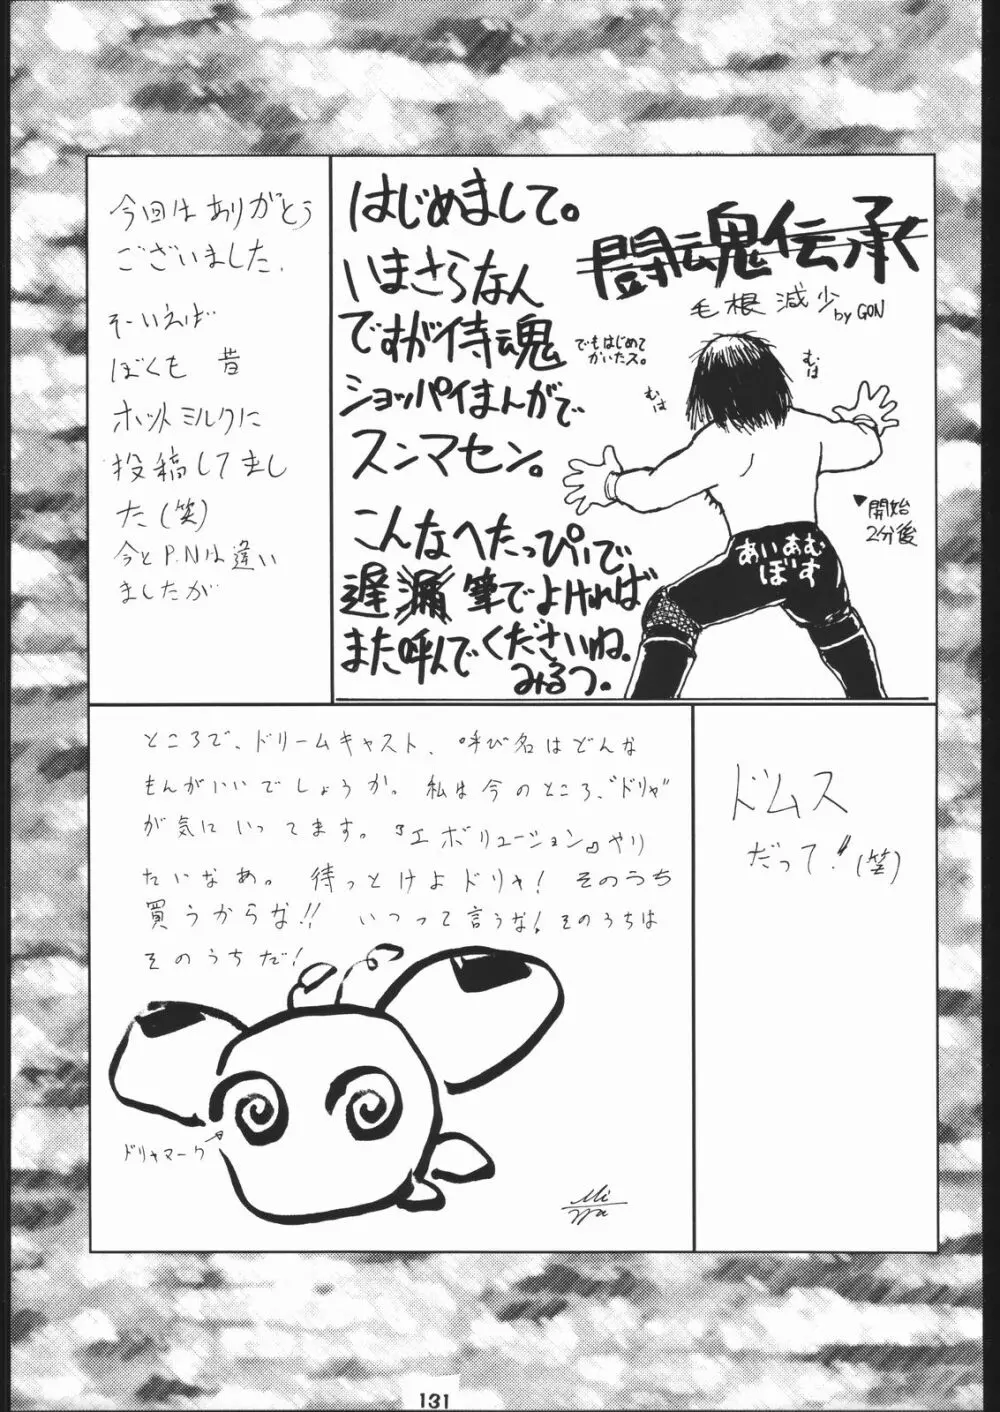 はじめまして。
いまさらなん
ですが侍魂
ショッパイまんがで
スンマセン。
こんなへたっぴぃで
遅漏筆でよければ
また呼んでくださいね。
みるつ。
闘魂伝承
毛根減少 by GON
でもはじめて
かいたス。
むは
むは
▼開始
2分後
あいあむ
ぼす
今回はありがとう
ございました.
そーいえば
ぼくも 昔
ホットミルクに
投稿してまし
た(笑)
今とP.Nは違い
ましたが
ドムス
だって!!(笑)
ところで、ドリームキャスト、呼び名はどんな
もんがいいでしょうか。私は今のところ、“ドリャ”
が気にいってます。『エボリューション』やり
たいなあ。 待っとけよドリャ! そのうち
買うからな!! いつって言うな! そのうちは
そのうちだ!
ドリャマーク
131